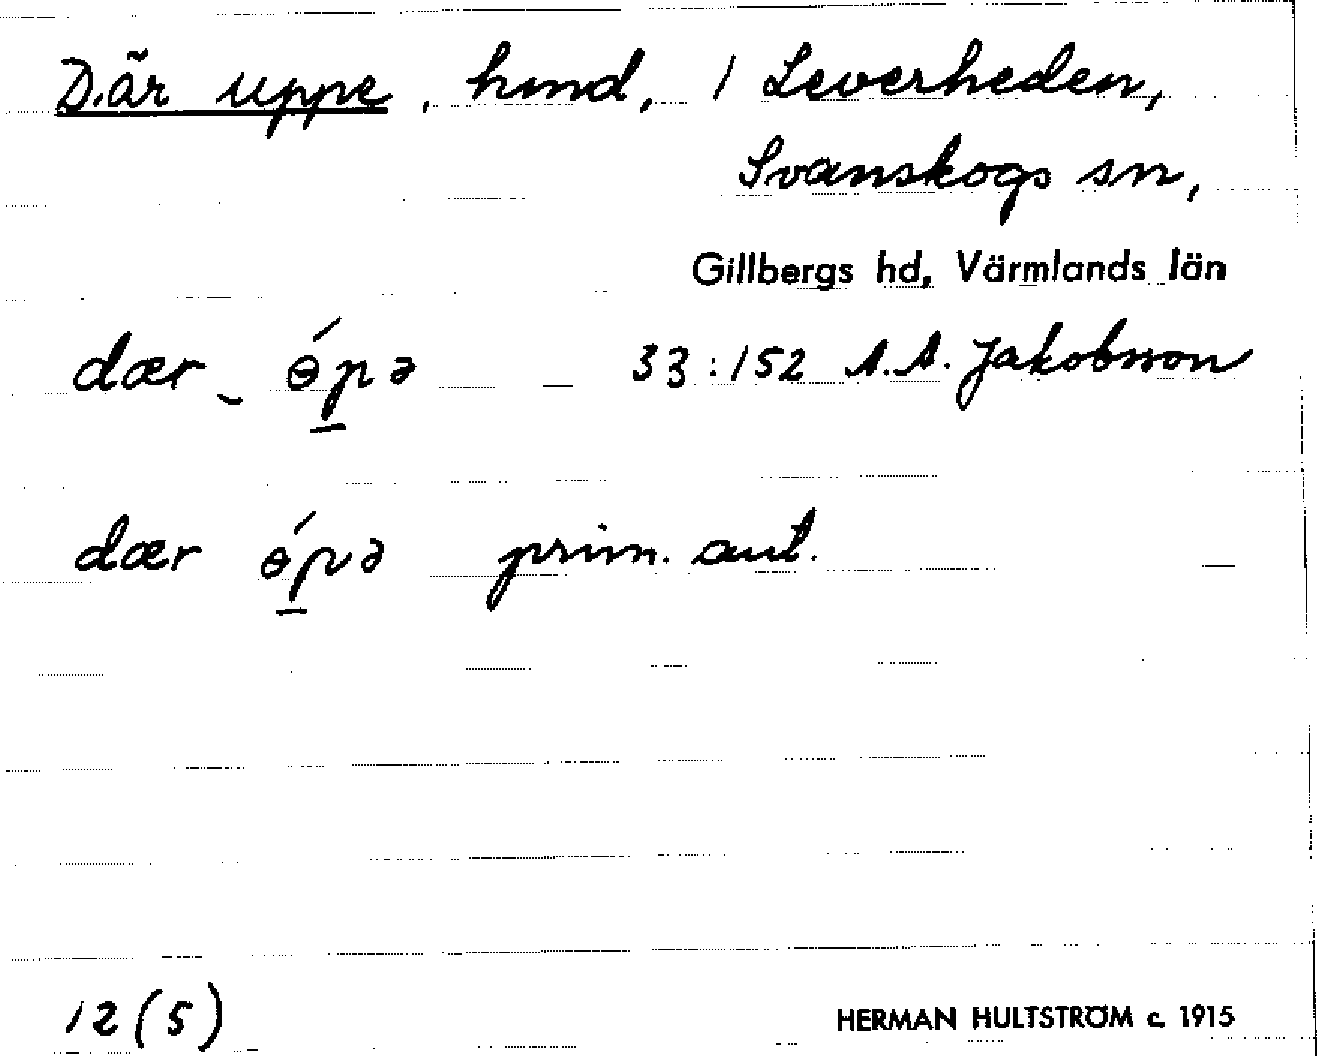 Där uppe, hmd, 1 Leverheden,
Svanskogs sn,
Gillbergs hd, Värmlands län
dær ‿ ɵ́p̠ə – 33:152 A.A. Jakobsson
dær ɵ́p̠ə prim. aut.
12(5)
HERMAN HULTSTRÖM c. 1915